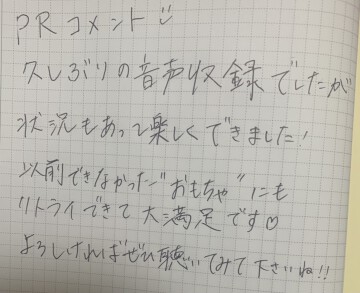 PRコメント
久しぶりの音声収録でしたが
状況もあって楽しくできました!
以前できなかった"おもちゃ"にも
リトライできて大満足です♡
よろしければぜひ聴いてみて下さいね!!